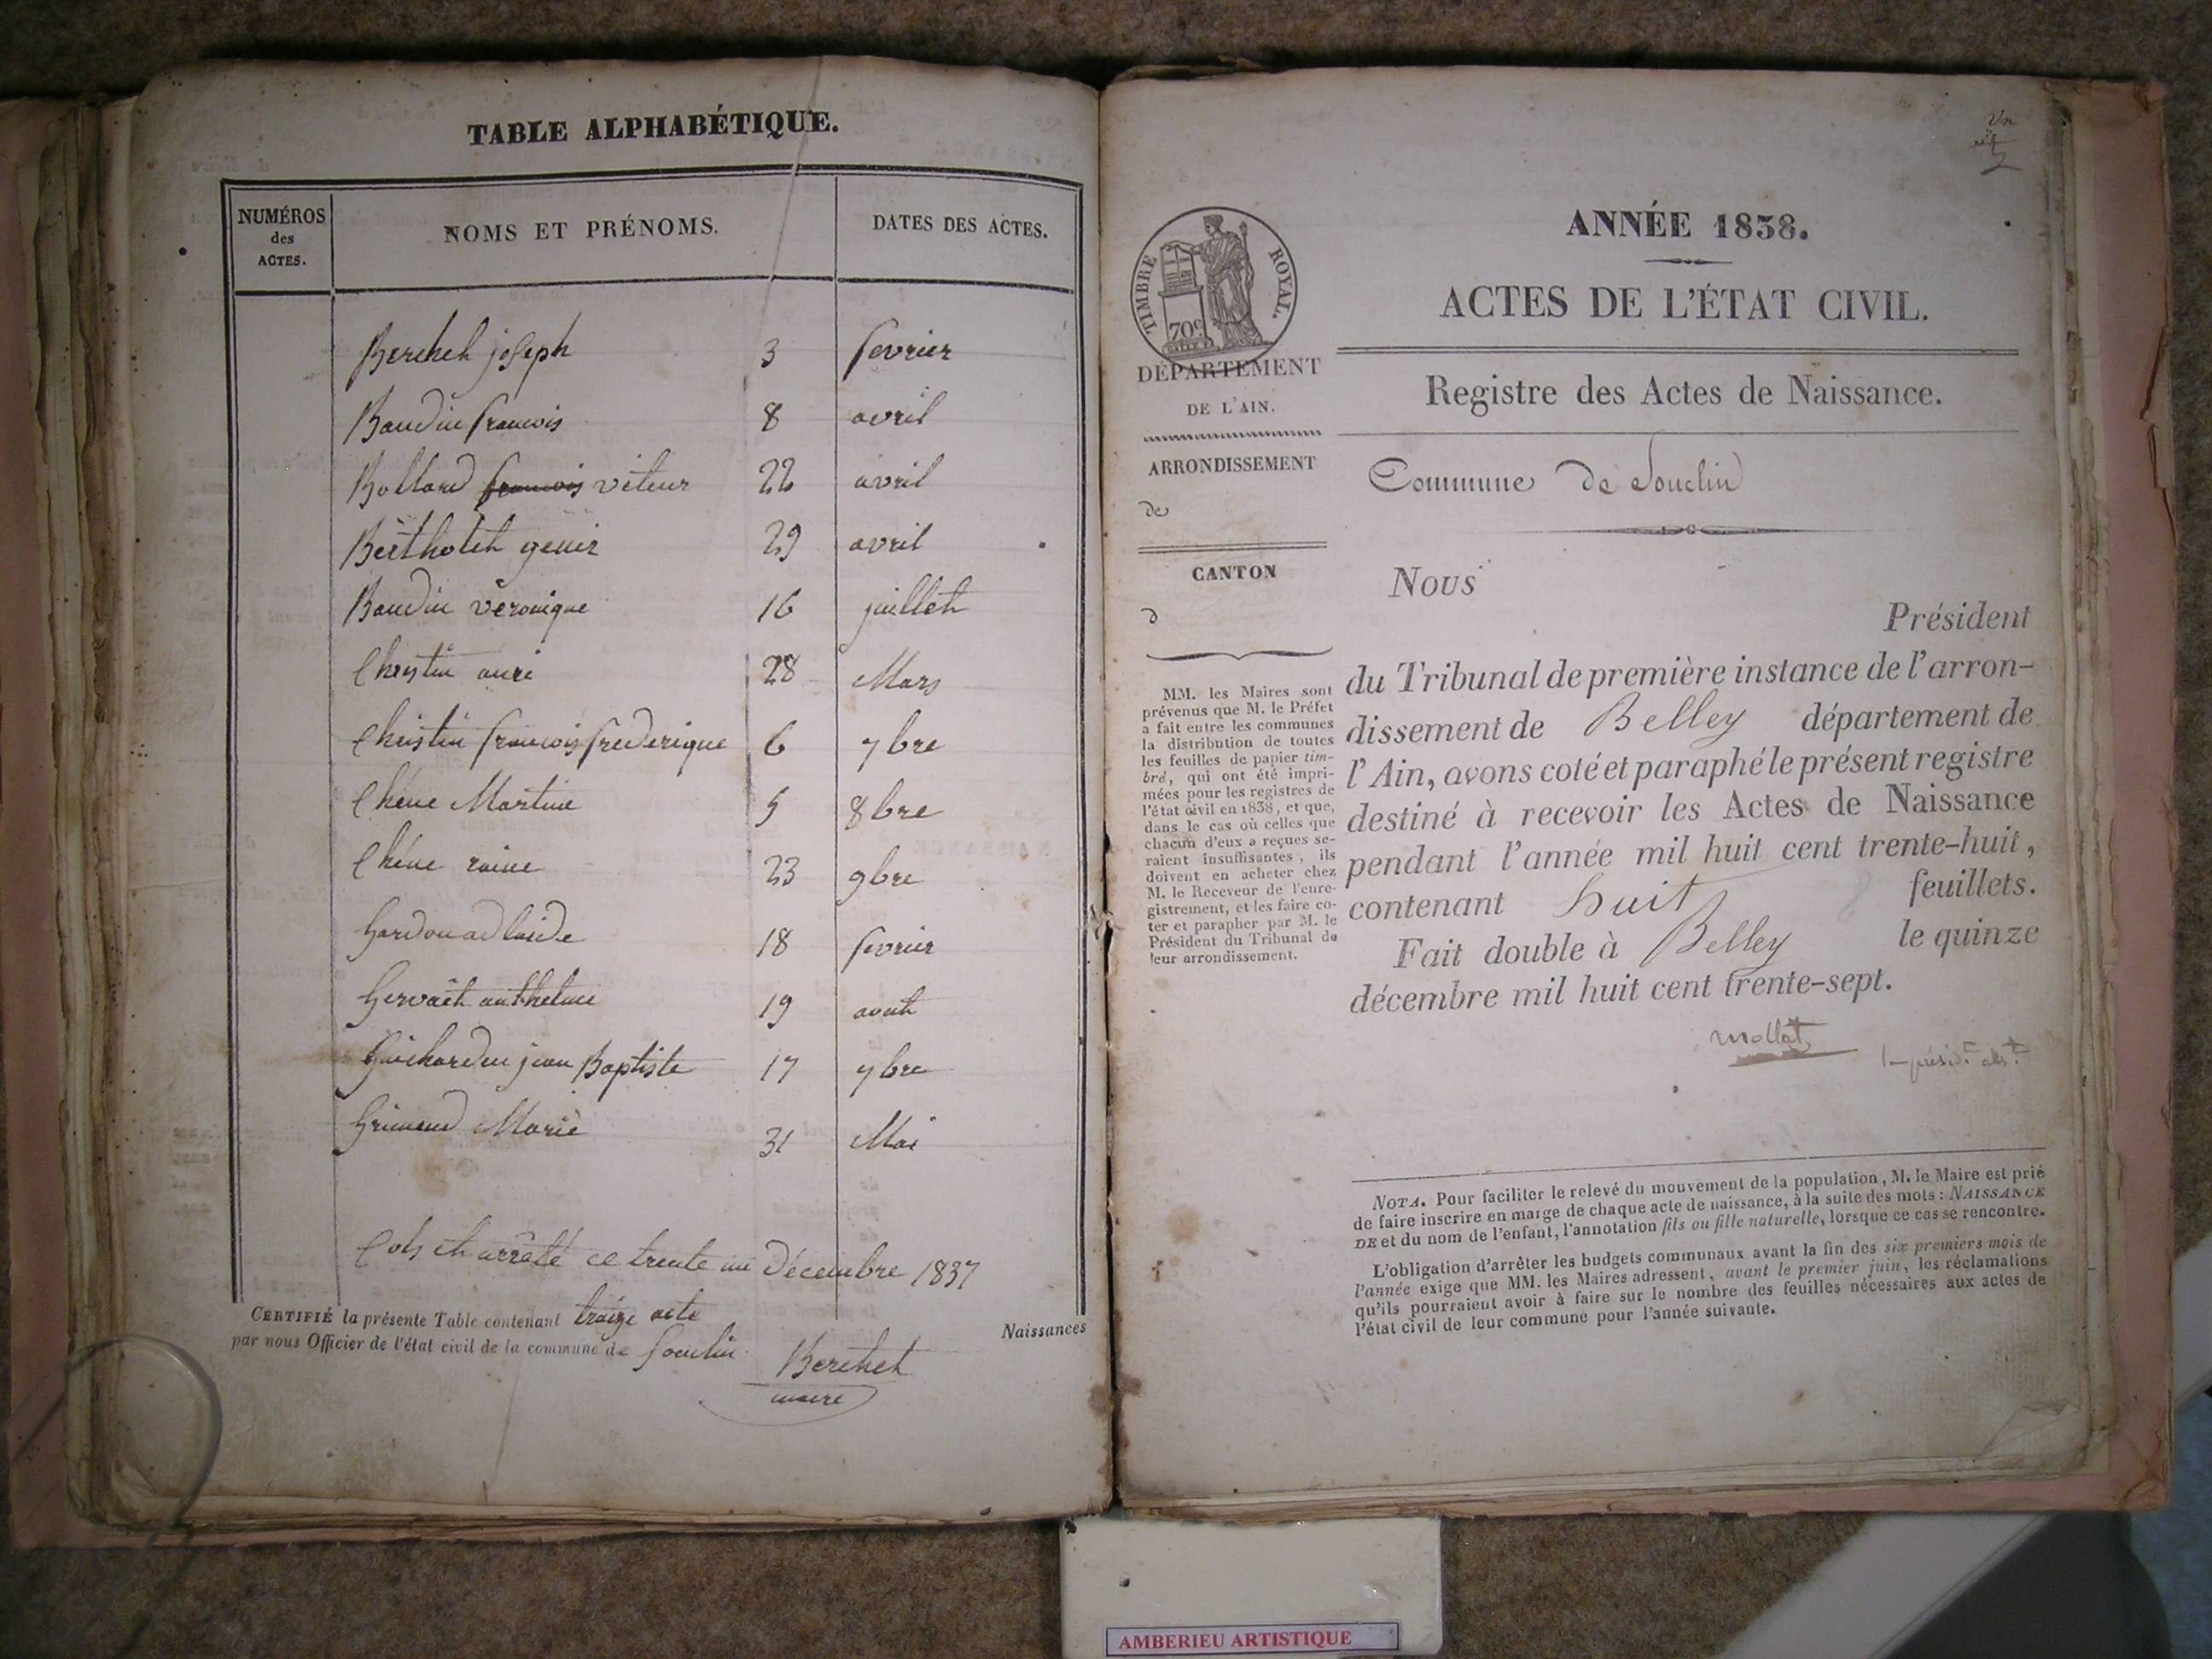 TABLE ALPHABÉTIQUE.
NUMÉROS des ACTES.
NOMS ET PRÉNOMS.
DATES DES ACTES.
Berthet joseph 3 fevrier
Baudin francois 8 avril
Bollard francois viteur 22 avril
Bertholeth genir 29 avril
Baudin veronique 16 juillet
Christin 28 Mars
Christin francois frederique 6 7bre
Chêne Martine 5 8bre
Chêne raine 23 9bre
Gardon adlaide 18 fevrier
Gervaith anthelme 19 aout
Guichardon jean Baptiste 17 7bre
Grimaud Marie 31 Mai
Cots et arrêté ce trente un Décembre 1837
CERTIFIÉ la présente Table contenant traize acte
par nous Officier de l'état civil de la commune de Souclin
Naissances
Berthet
maire
Un
et
ANNÉE 1838.
ACTES DE L'ÉTAT CIVIL.
Registre des Actes de Naissance.
Commune de Souclin
TIMBRE ROYAL.
70c
DÉPARTEMENT
DE L'AIN.
ARRONDISSEMENT
de
CANTON
d
MM. les Maires sont
prévenus que M. le Préfet
a fait entre les communes
la distribution de toutes
les feuilles de papier tim-
bré, qui ont été impri-
mées pour les registres de
l'état civil en 1838, et que,
dans le cas où celles que
chacun d'eux a reçues se-
raient insuffisantes, ils
doivent en acheter chez
M. le Receveur de l'enre-
gistrement, et les faire co-
ter et parapher par M. le
Président du Tribunal de
leur arrondissement.
Nous
Président
du Tribunal de première instance de l'arron-
dissement de Belley département de
l'Ain, avons coté et paraphé le présent registre
destiné à recevoir les Actes de Naissance
pendant l'année mil huit cent trente-huit,
contenant huit feuillets.
Fait double à Belley le quinze
décembre mil huit cent trente-sept.
Mollet
NOTA. Pour faciliter le relevé du mouvement de la population, M. le Maire est prié
de faire inscrire en marge de chaque acte de naissance, à la suite des mots: NAISSANCE
DE et du nom de l'enfant, l'annotation fils ou fille naturelle, lorsque ce cas se rencontre.
L'obligation d'arrêter les budgets communaux avant la fin des six premiers mois de
l'année exige que MM. les Maires adressent, avant le premier juin, les réclamations
qu'ils pourraient avoir à faire sur le nombre des feuilles nécessaires aux actes de
l'état civil de leur commune pour l'année suivante.
AMBERIEU ARTISTIQUE